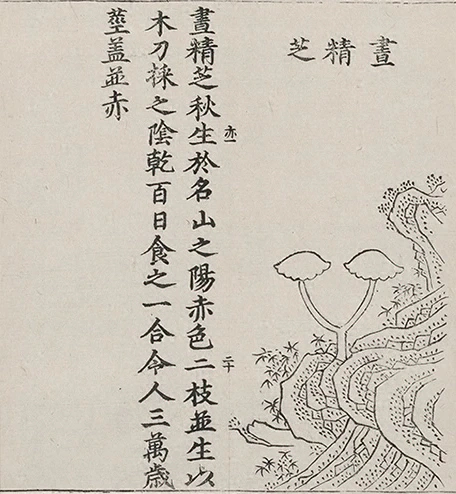 晝精芝
晝精芝秋生於名山之陽赤色二枝並生以
亦一
二十
木刀採之陰乾百日食之一合令人三萬歲
莖盖並赤